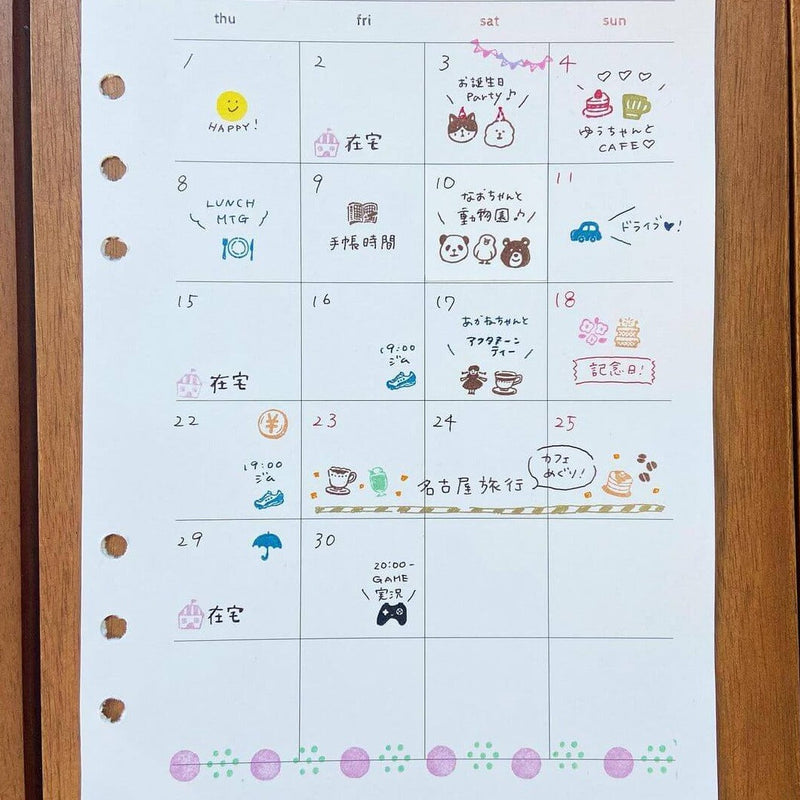 thu fri sat sun
1
HAPPY!
2
在宅
3
お誕生日
Party♪
4
♡♡♡
ゆうちゃんと
CAFE♡
8
LUNCH
MTG
9
手帳時間
10
なおちゃんと
動物園♪
11
ドライブ♥!
15
在宅
16
19:00
ジム
17
あかねちゃんと
アフタヌーン
ティー
18
記念日!
22
¥
19:00
ジム
23
24
25
名古屋旅行
カフェ
めぐり!
29
在宅
30
20:00-
GAME
実況